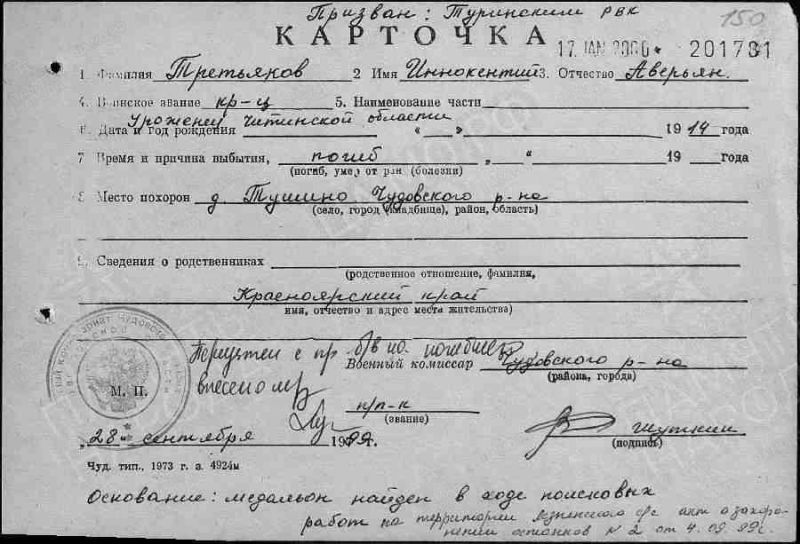 Призван: Туринским РВК
150
КАРТОЧКА
17 JAN 2000 * 201731
1. Фамилия Третьяков 2 Имя Иннокентий 3. Отчество Аверьян.
4. Воинское звание кр-ц 5. Наименование части
Уроженец Читинской области
6. Дата и год рождения « » 1914 года
7 Время и причина выбытия, погиб „ “ 19 года
(погиб, умер от ран (болезни)
8. Место похорон д. Тушино Чудовского р-на
(село, город (кладбище), район, область)
9. Сведения о родственниках
(родственное отношение, фамилия,
Красноярский край
имя, отчество и адрес места жительства)
с пр б/в по. погибшего
Военный комиссар Чудовского р-на
(района, города)
М. П.
внесено
п/п-к
(звание)
Шуткин
(подпись)
„28“ сентября 1999г.
Чуд. тип., 1973 г. з. 4924м
Основание: медальон найден в ходе поисковых
работ на территории с/с акт о захоро-
нении останков № 2 от 4.09.99г.